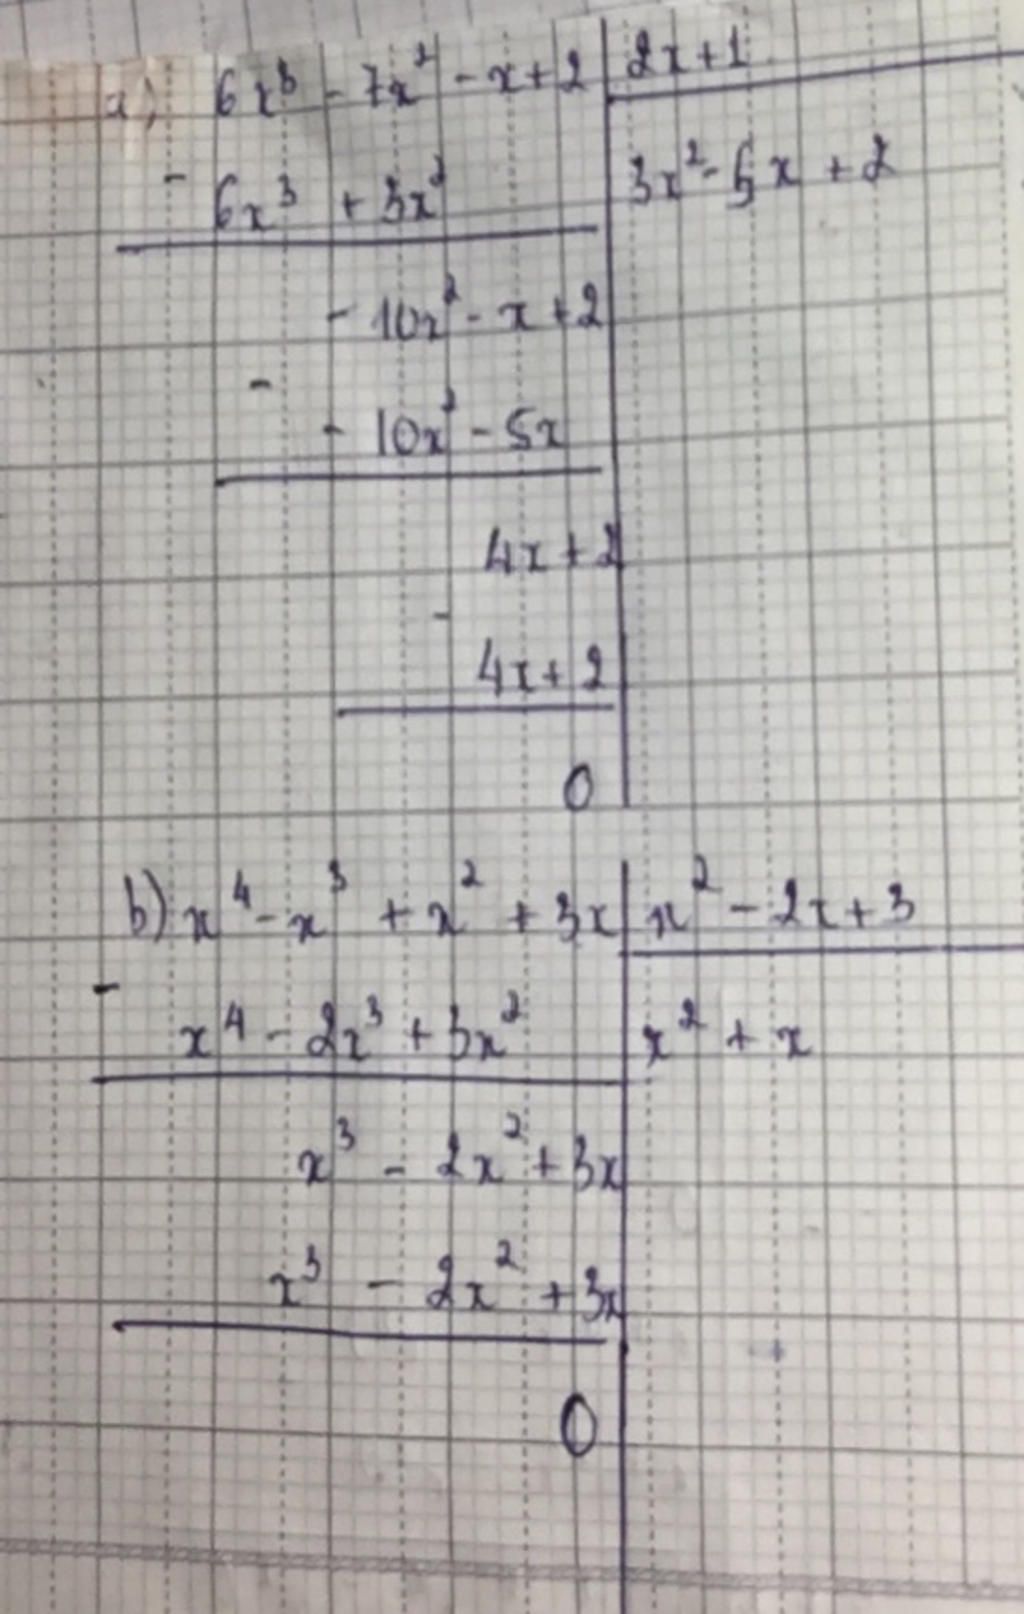 a) 6x³ - 7x² - x + 2 | 2x + 1
- 6x³ + 3x² | 3x² - 5x + 2
- 10x² - x + 2
-
- 10x² - 5x
4x + 2
-
4x + 2
0
b) x⁴ - x³ + x² + 3x | x² - 2x + 3
-
x⁴ - 2x³ + 3x² | x² + x
x³ - 2x² + 3x
x³ - 2x² + 3x
0